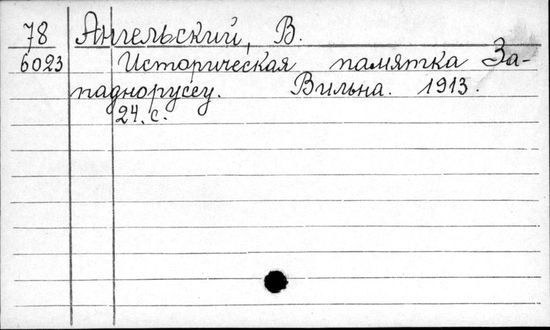 78 Ангельский, В.
6023 Историческая памятка За-
паднорусеу. Вильна. 1913.
24. с.